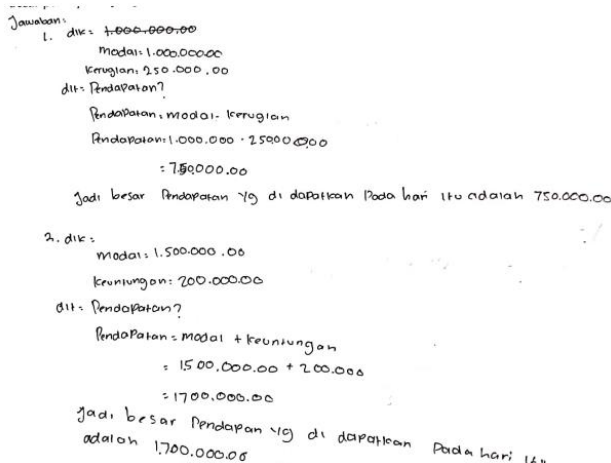 Jawaban:
1. dik: 1.000.000.00
modal: 1.000.000.00
kerugian: 250.000.00
dit: Pendapatan?
Pendapatan: modal - kerugian
Pendapatan: 1.000.000 - 250.000.00
= 750.000.00
Jadi besar Pendapatan yg di dapatkan Pada hari itu adalah 750.000.00
2. dik:
modal: 1.500.000.00
keuntungan: 200.000.00
dit: Pendapatan?
Pendapatan = modal + keuntungan
= 1500.000.00 + 200.000
= 1700.000.00
Jadi besar Pendapan yg di dapatkan Pada hari itu
adalah 1.700.000.00